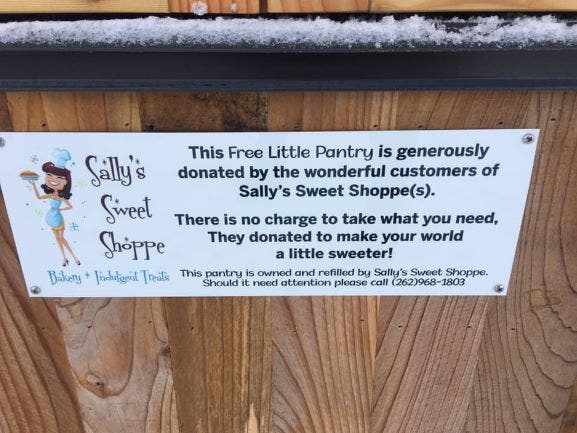 Sally's
Sweet
Shoppe
Bakery + Indulgent Treats
This Free Little Pantry is generously
donated by the wonderful customers of
Sally's Sweet Shoppe(s).
There is no charge to take what you need,
They donated to make your world
a little sweeter!
This pantry is owned and refilled by Sally's Sweet Shoppe.
Should it need attention please call (262)968-1803